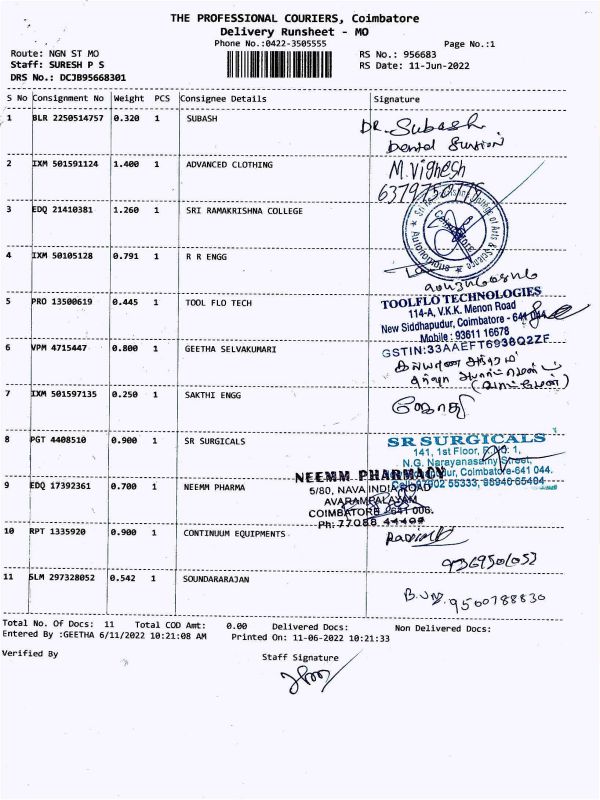 THE PROFESSIONAL COURIERS, Coimbatore
Delivery Runsheet - MO
Phone No.:0422-3505555 Page No.:1
Route: NGN ST MO RS No.: 956683
Staff: SURESH P S RS Date: 11-Jun-2022
DRS No.: DCJB95668301
S No Consignment No Weight PCS Consignee Details Signature
1 BLR 2250514757 0.320 1 SUBASH
DR. Subash
Dental
2 IXM 501591124 1.400 1 ADVANCED CLOTHING
M. Vighesh
3 EDQ 21410381 1.260 1 SRI RAMAKRISHNA COLLEGE
of Arts & Science * Autonomous *
Coimbatore
4 IXM 50105128 0.791 1 R R ENGG
5 PRO 13500619 0.445 1 TOOL FLO TECH
TOOLFLO TECHNOLOGIES
114-A, V.K.K. Menon Road
New Siddhapudur, Coimbatore - 641 044.
Mobile : 93611 16678
GSTIN:33AAEFT6938Q2ZF
6 VPM 4715447 0.800 1 GEETHA SELVAKUMARI
7 IXM 501597135 0.250 1 SAKTHI ENGG
ஜோதி
8 PGT 4408510 0.900 1 SR SURGICALS
SR SURGICALS
141, 1st Floor, 1,
N.G. Narayanasamy Street,
Coimbatore-641 044.
55333, 98940 65404
9 EDQ 17392361 0.700 1 NEEMM PHARMA
NEEMM PHARMACY
5/80, NAVA INDIA ROAD
AVARAMPALAYAM
COIMBATORE - 641 006.
Ph: 77088 44404
10 RPT 1335920 0.900 1 CONTINUUM EQUIPMENTS
11 SLM 297328052 0.542 1 SOUNDARARAJAN
9500788830
Total No. Of Docs: 11 Total COD Amt: 0.00 Delivered Docs: Non Delivered Docs:
Entered By :GEETHA 6/11/2022 10:21:08 AM Printed On: 11-06-2022 10:21:33
Verified By Staff Signature